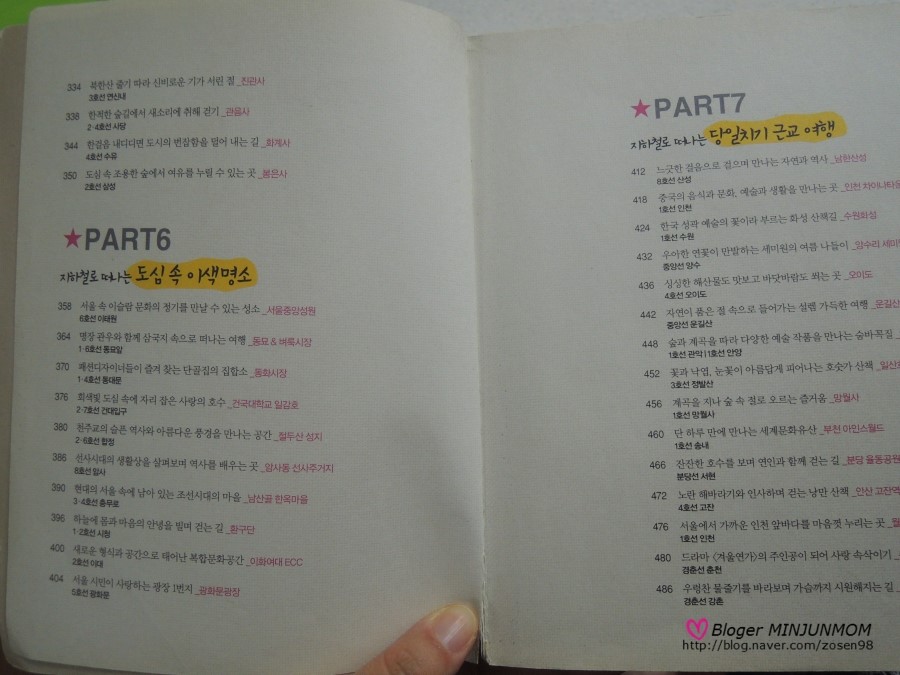 334 북한산 줄기 따라 신비로운 기가 서린 절 _진관사
3호선 연신내
338 한적한 숲길에서 새소리에 취해 걷기 _관음사
2·4호선 사당
344 한걸음 내디디면 도시의 번잡함을 덜어 내는 길 _화계사
4호선 수유
350 도심 속 조용한 숲에서 여유를 누릴 수 있는 곳 _봉은사
2호선 삼성
★PART6
지하철로 떠나는 도심 속 이색명소
358 서울 속 이슬람 문화의 정기를 만날 수 있는 성소 _서울중앙성원
6호선 이태원
364 명장 관우와 함께 삼국지 속으로 떠나는 여행 _동묘 & 벼룩시장
1·6호선 동묘앞
370 패션디자이너들이 즐겨 찾는 단골집의 집합소 _동화시장
1·4호선 동대문
376 회색빛 도심 속에 자리 잡은 사랑의 호수 _건국대학교 일감호
2·7호선 건대입구
380 천주교의 슬픈 역사와 아름다운 풍경을 만나는 공간 _절두산 성지
2·6호선 합정
386 선사시대의 생활상을 살펴보며 역사를 배우는 곳 _암사동 선사주거지
8호선 암사
390 현대의 서울 속에 남아 있는 조선시대의 마을 _남산골 한옥마을
3·4호선 충무로
396 하늘에 몸과 마음의 안녕을 빌며 걷는 길 _환구단
1·2호선 시청
400 새로운 형식과 공간으로 태어난 복합문화공간 _이화여대 ECC
2호선 이대
404 서울 시민이 사랑하는 광장 1번지 _광화문광장
5호선 광화문
★PART7
지하철로 떠나는 당일치기 근교 여행
412 느긋한 걸음으로 걸으며 만나는 자연과 역사 _남한산성
8호선 산성
418 중국의 음식과 문화, 예술과 생활을 만나는 곳 _인천 차이나타운
1호선 인천
424 한국 성곽 예술의 꽃이라 부르는 화성 산책길 _수원화성
1호선 수원
432 우아한 연꽃이 만발하는 세미원의 여름 나들이 _양수리 세미
중앙선 양수
436 싱싱한 해산물도 맛보고 바닷바람도 쐬는 곳 _오이도
4호선 오이도
442 자연이 품은 절 속으로 들어가는 설렘 가득한 여행 _운길산
중앙선 운길산
448 숲과 계곡을 따라 다양한 예술 작품을 만나는 숨바꼭질 _
1호선 관악 | 1호선 안양
452 꽃과 낙엽, 눈꽃이 아름답게 피어나는 호숫가 산책 _일산호
3호선 정발산
456 계곡을 지나 숲 속 절로 오르는 즐거움 _망월사
1호선 망월사
460 단 하루 만에 만나는 세계문화유산 _부천 아인스월드
1호선 송내
466 잔잔한 호수를 보며 연인과 함께 걷는 길 _분당 율동공원
분당선 서현
472 노란 해바라기와 인사하며 걷는 낭만 산책 _안산 고잔역
4호선 고잔
476 서울에서 가까운 인천 앞바다를 마음껏 누리는 곳 _월
1호선 인천
480 드라마 〈겨울연가〉의 주인공이 되어 사랑 속삭이기 _
경춘선 춘천
486 우렁찬 물줄기를 바라보며 가슴까지 시원해지는 길 _
경춘선 강촌
Bloger MINJUNMOM
http://blog.naver.com/zosen98